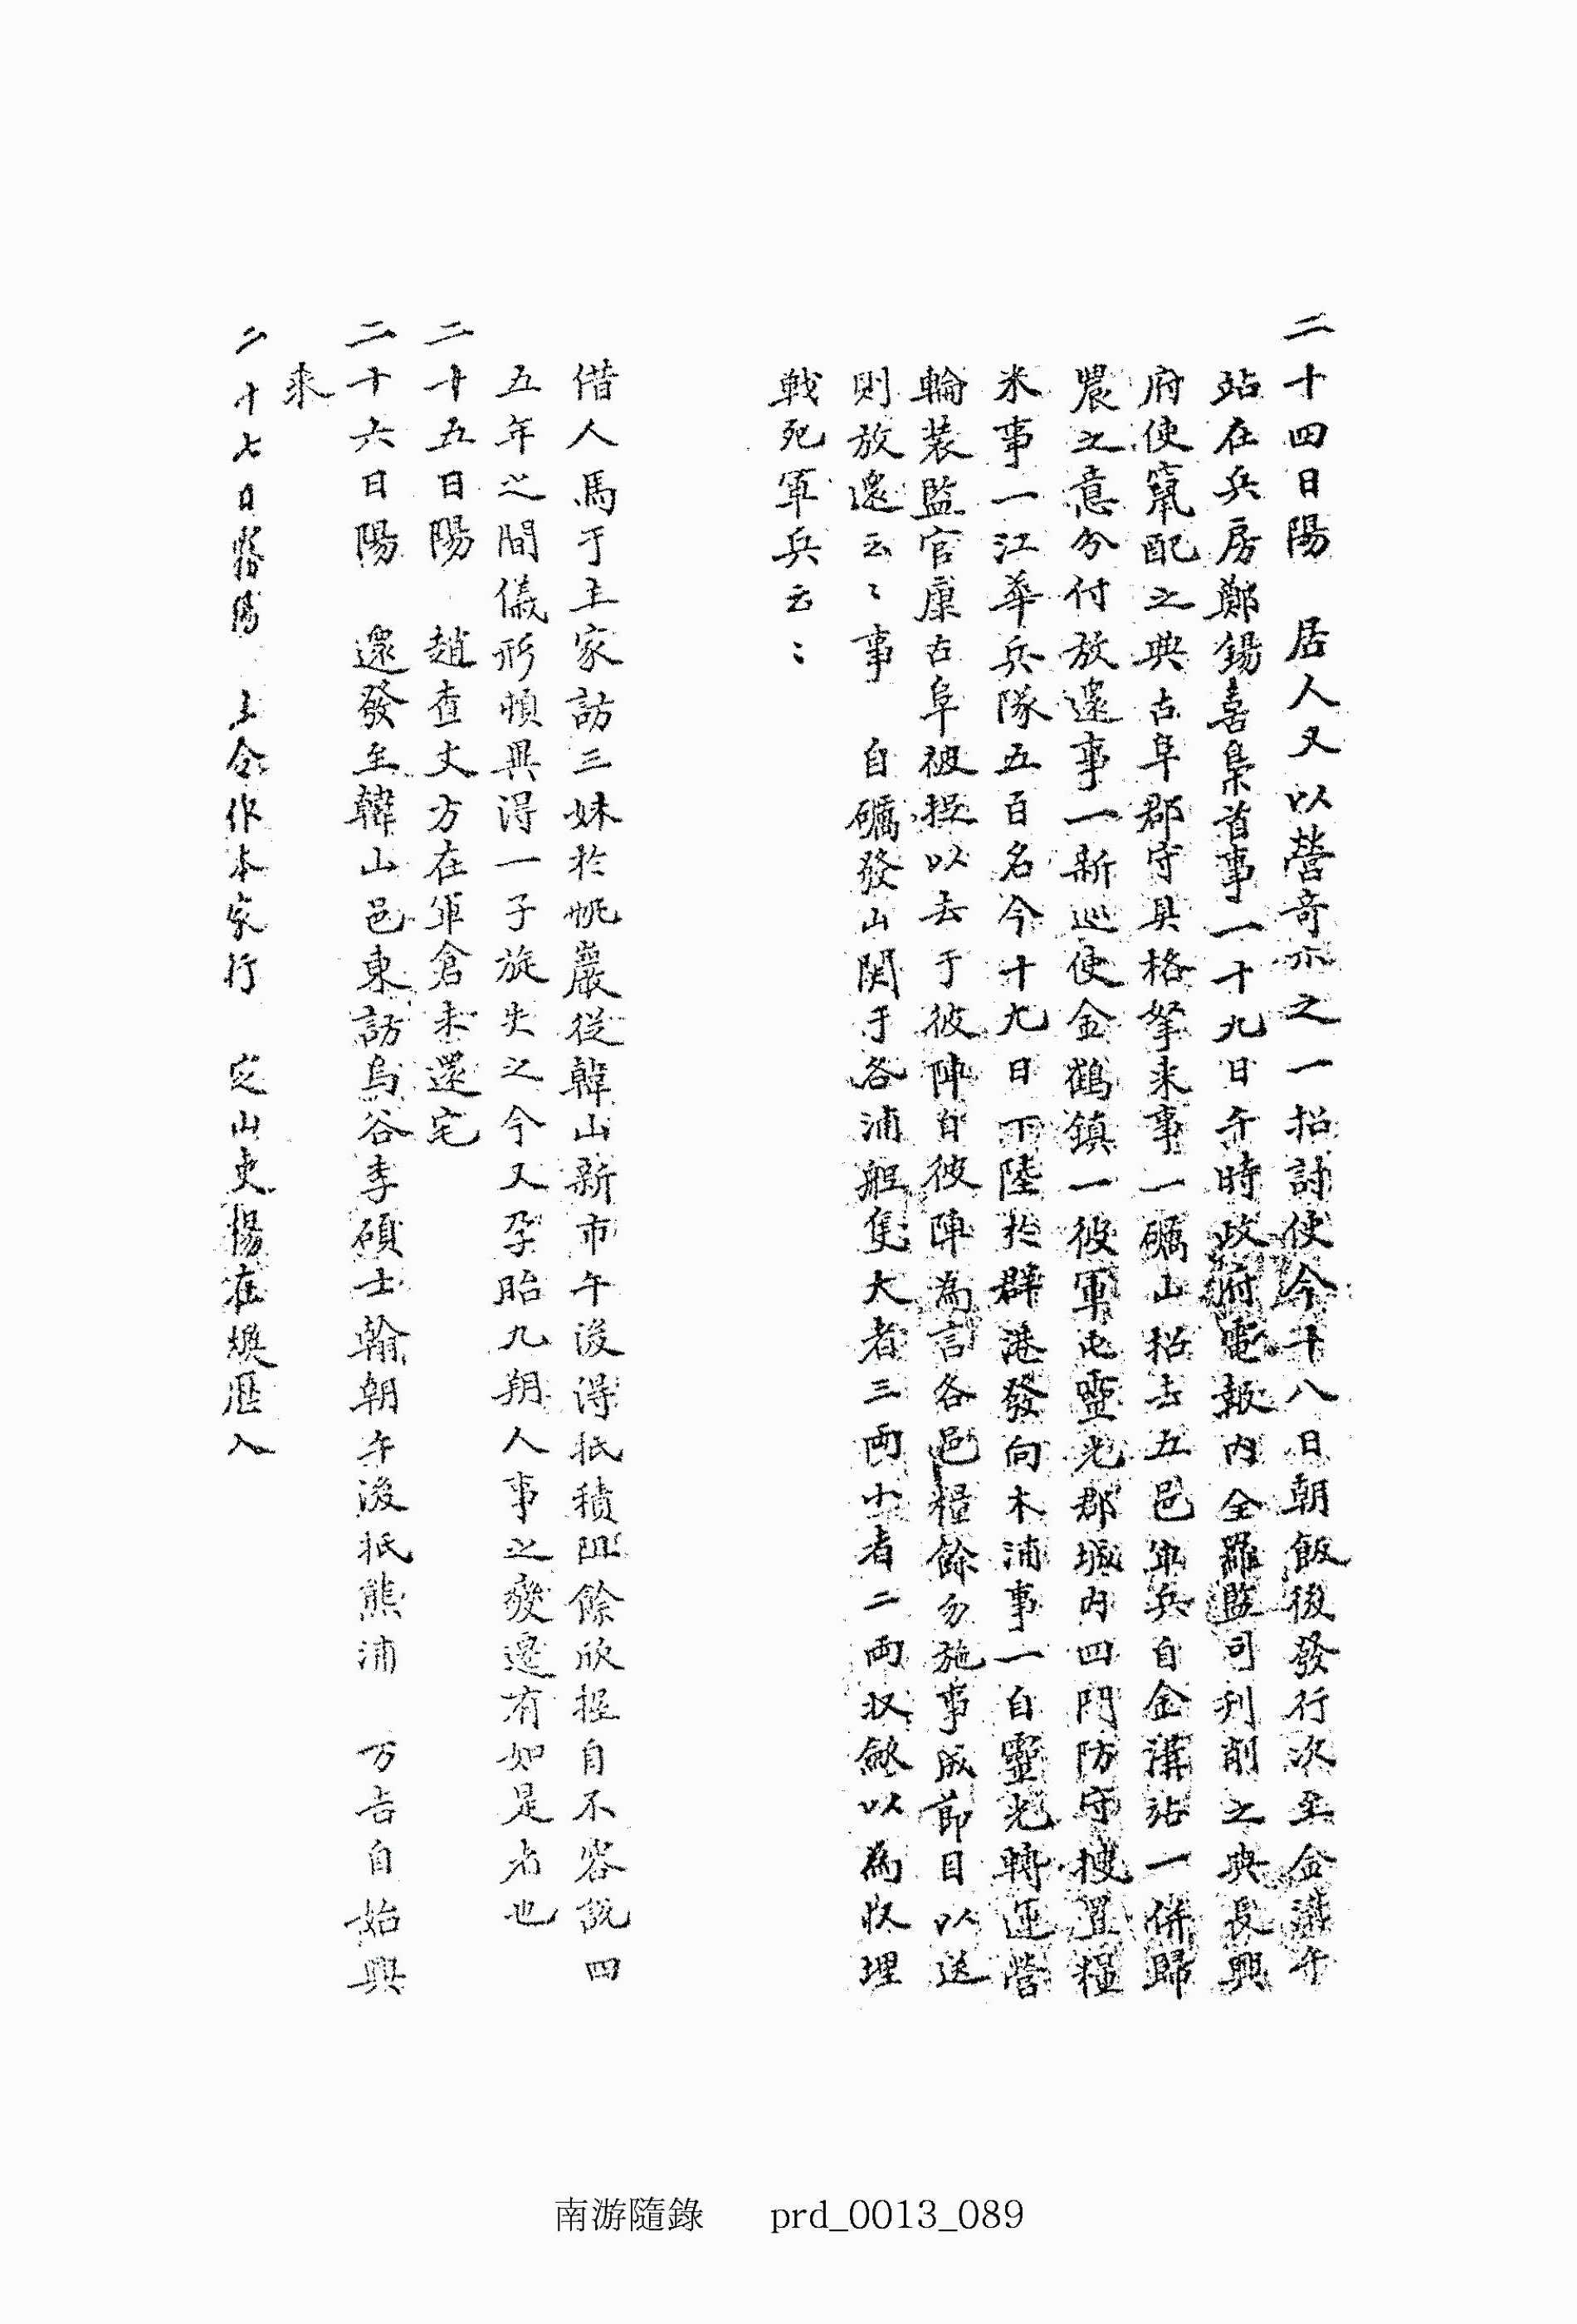 二十四日陽　居人又以營奇示之一招討使今十八日朝飯後發行次至金溝午
站在兵房鄭錫喜梟首事一十九日午時政府電報內全羅監司刊削之典長興
府使竄配之典古阜郡守具格拏來事一礪山招去五邑軍兵自金溝站一倂歸
農之意分付放還事一新巡使金鶴鎭一彼軍屯靈光郡城內四門防守搜置糧
米事一江華兵隊五百名今十九日下陸於群港發向木浦事一自靈光轉運營
輪裝監官康古阜彼捉以去于彼陣自彼陣爲言各邑糧餘勿施事成節目以送
則放還云〻事　自礪發山関于各浦船隻大者三両小者二両収斂以爲収埋
戦死軍兵云〻
借人馬于主家訪三妹於姚巖從韓山新市午後得抵積阻餘欣握自不容說四
五年之間儀形頓異得一子旋失之今又孕胎九朔人事之變遷有如是者也
二十五日陽　趙査丈方在軍倉未還宅
二十六日陽　還發至韓山邑東訪烏谷李碩士翰朝午後抵熊浦　万吉自始興
來
二十七日陽　上令作本家行　定山吏楊在煥歷入